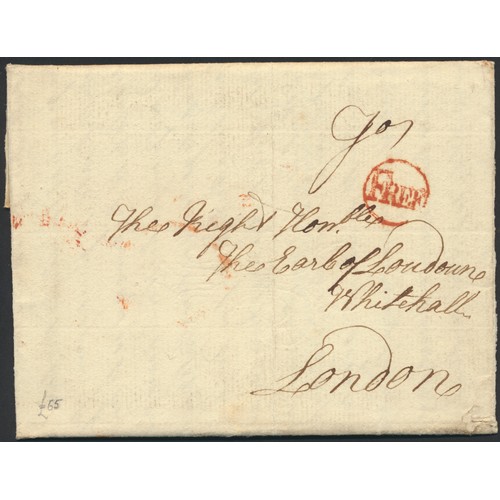 To
FREE
The Right Honble
The Earl of Loudoun
Whitehall
London
£65